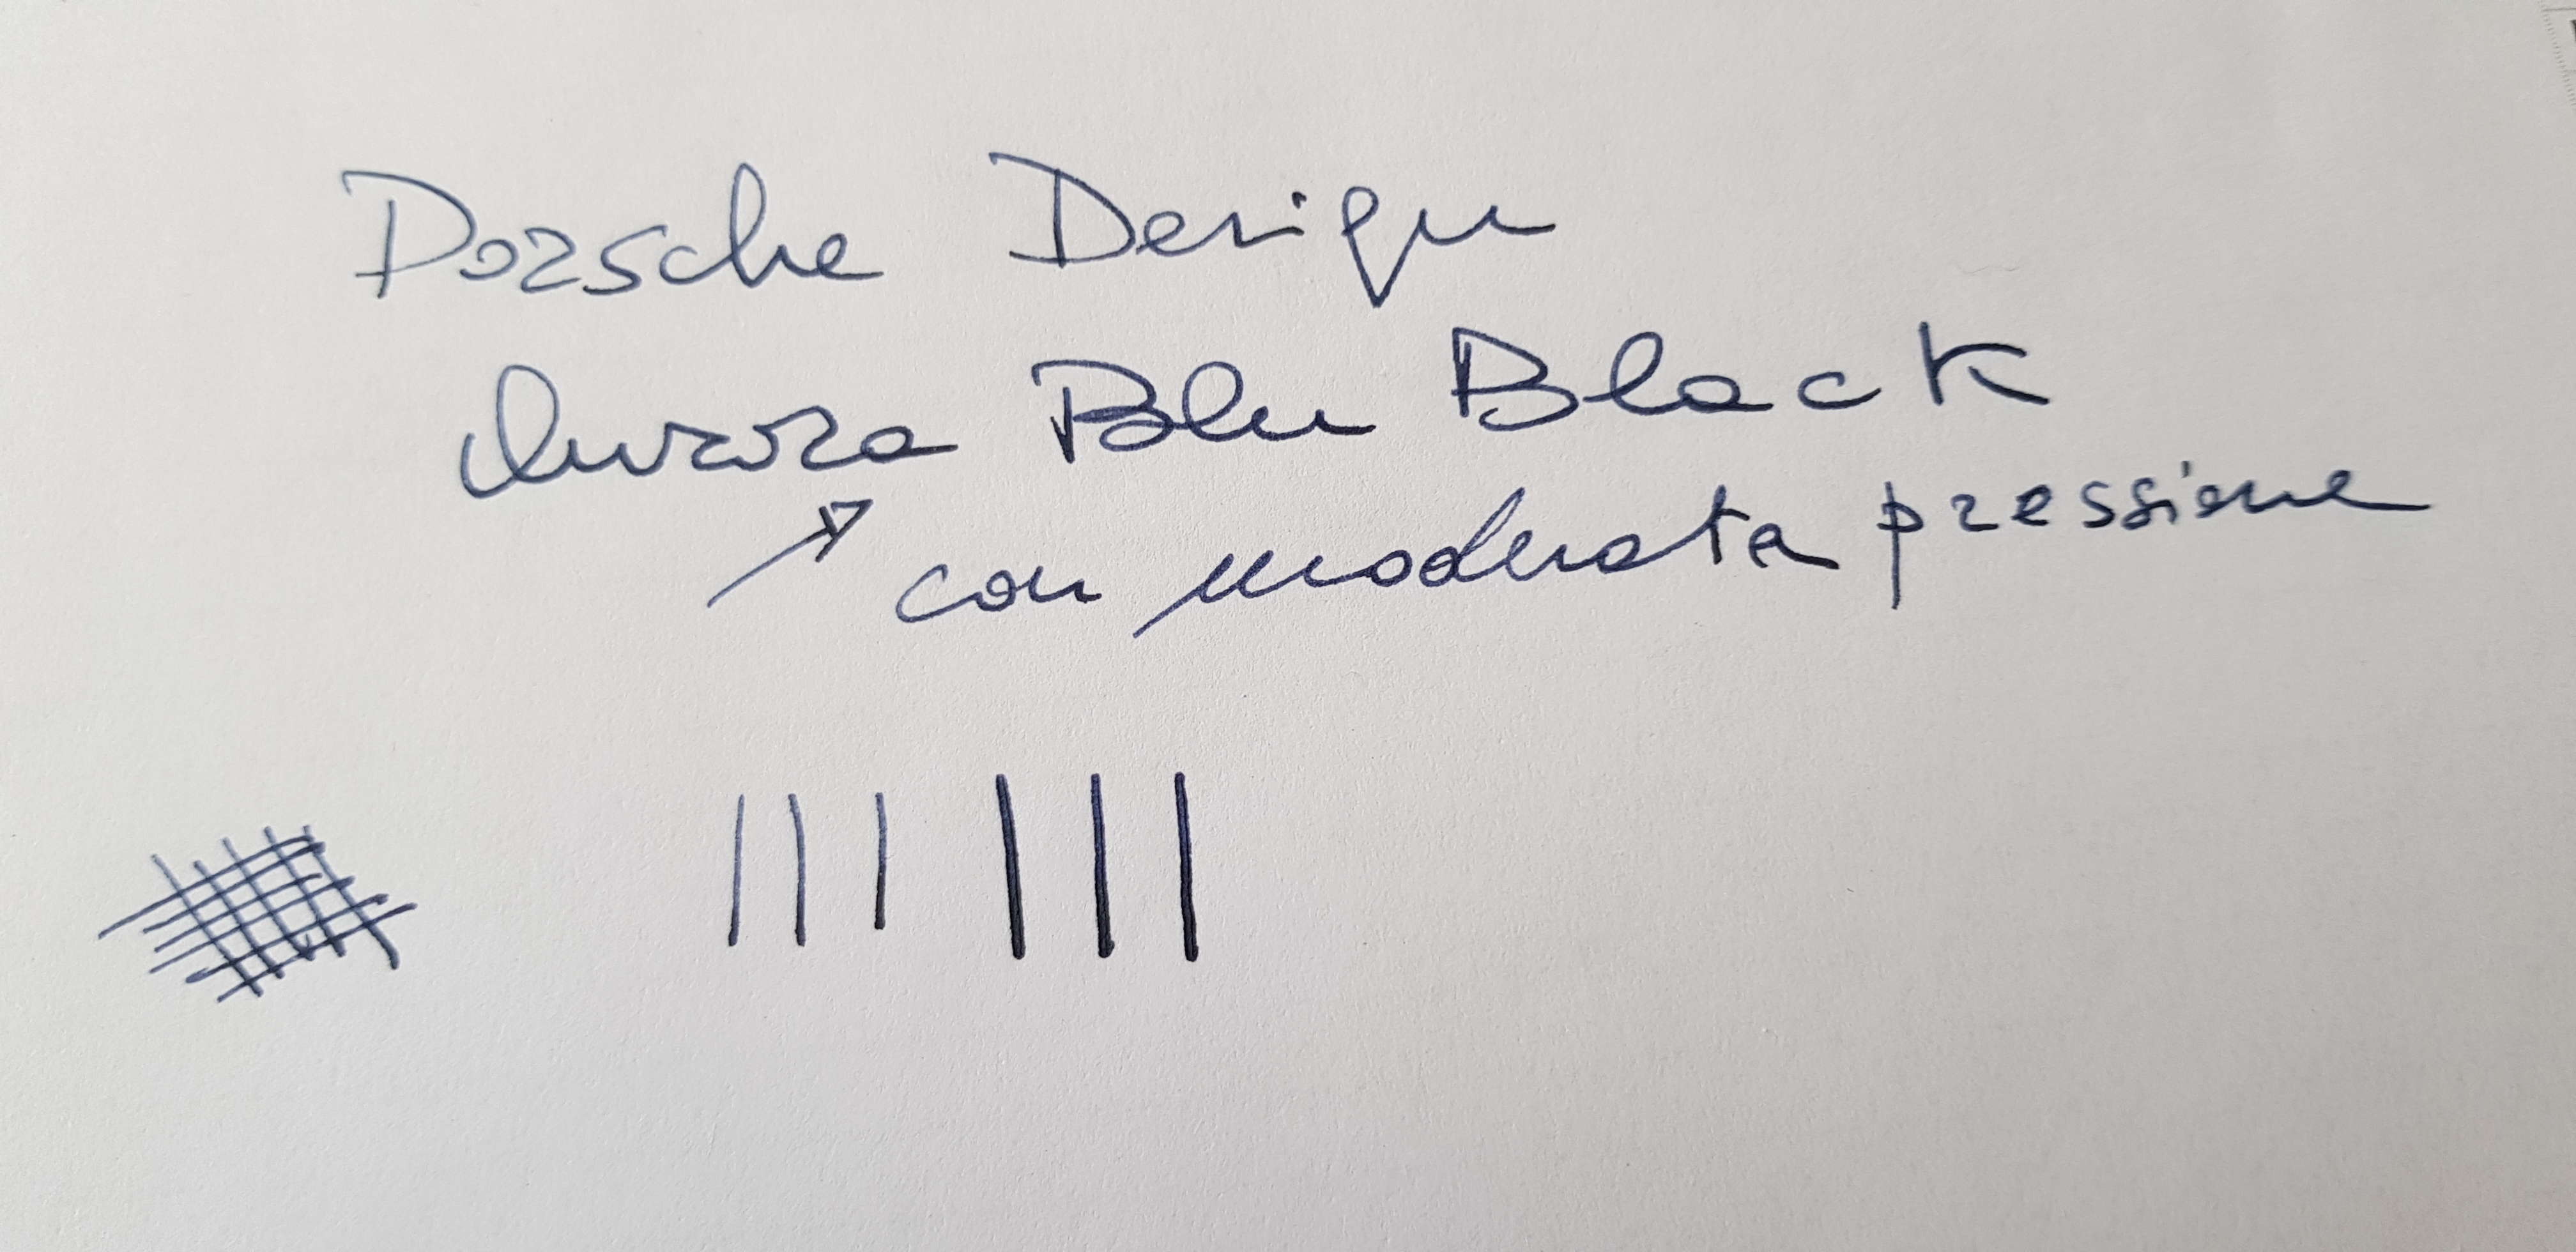 Porsche Design
Aurora Blu Black
con moderata pressione